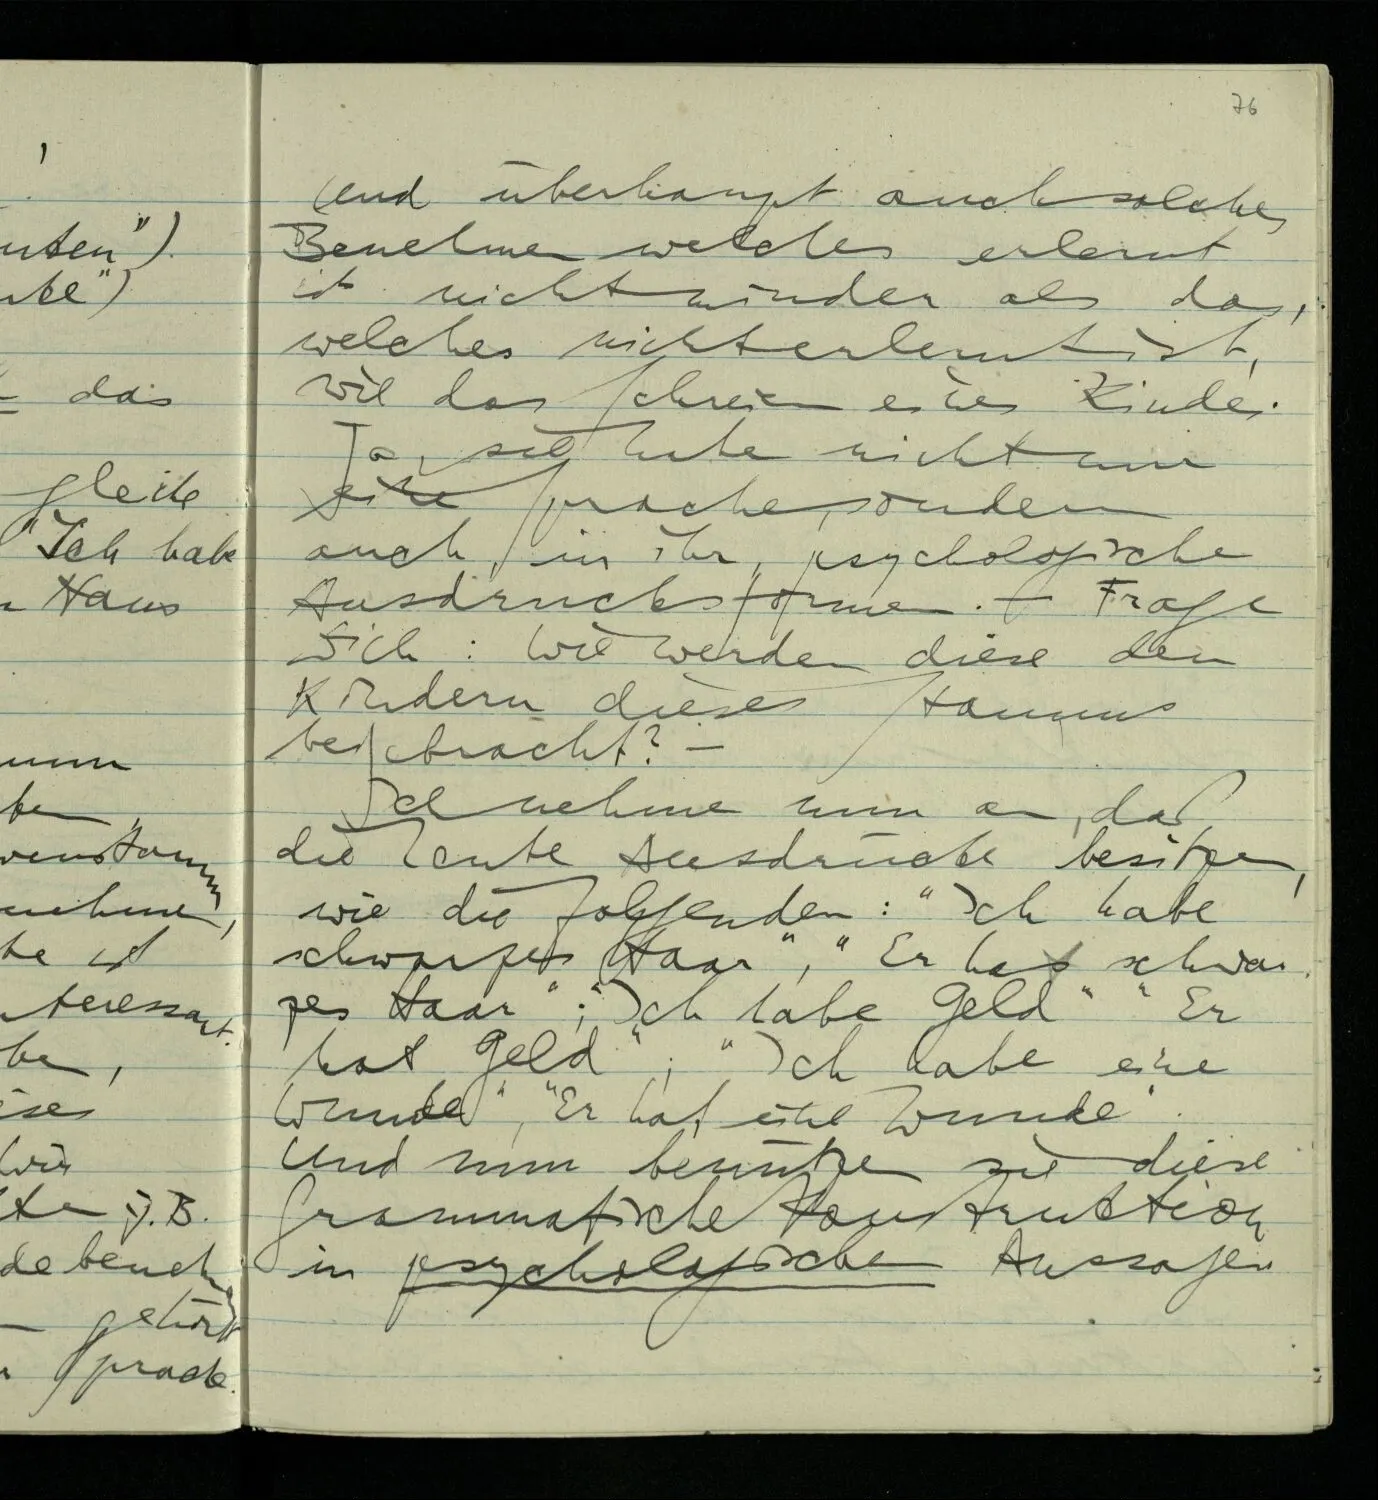 76
uten").
nke")
das
gleite
"Ich habe
Haus
teressant.
z.B.
gehört
Sprache.
und überhaupt auch solches
Benehmen welches erlernt
ist nicht minder als das,
welches nicht erlernt ist,
wie das Schreien eines Kindes.
Ja, sie habe nicht nur
eine Sprache, sondern
auch, in ihr, psychologische
Ausdrucksformen. – Frage
Dich: wie werden diese den
Kindern dieses Stammes
beigebracht? –
Ich nehme nun an, daß
die Leute Ausdrücke besitzen,
wie die folgenden: "Ich habe
schwarzes Haar", "Er hat schwar-
zes Haar"; "Ich habe Geld" "Er
hat Geld"; "Ich habe eine
Wunde", "Er hat eine Wunde".
Und nun benützen sie diese
grammatische Konstruktion
in psychologischen Aussagen